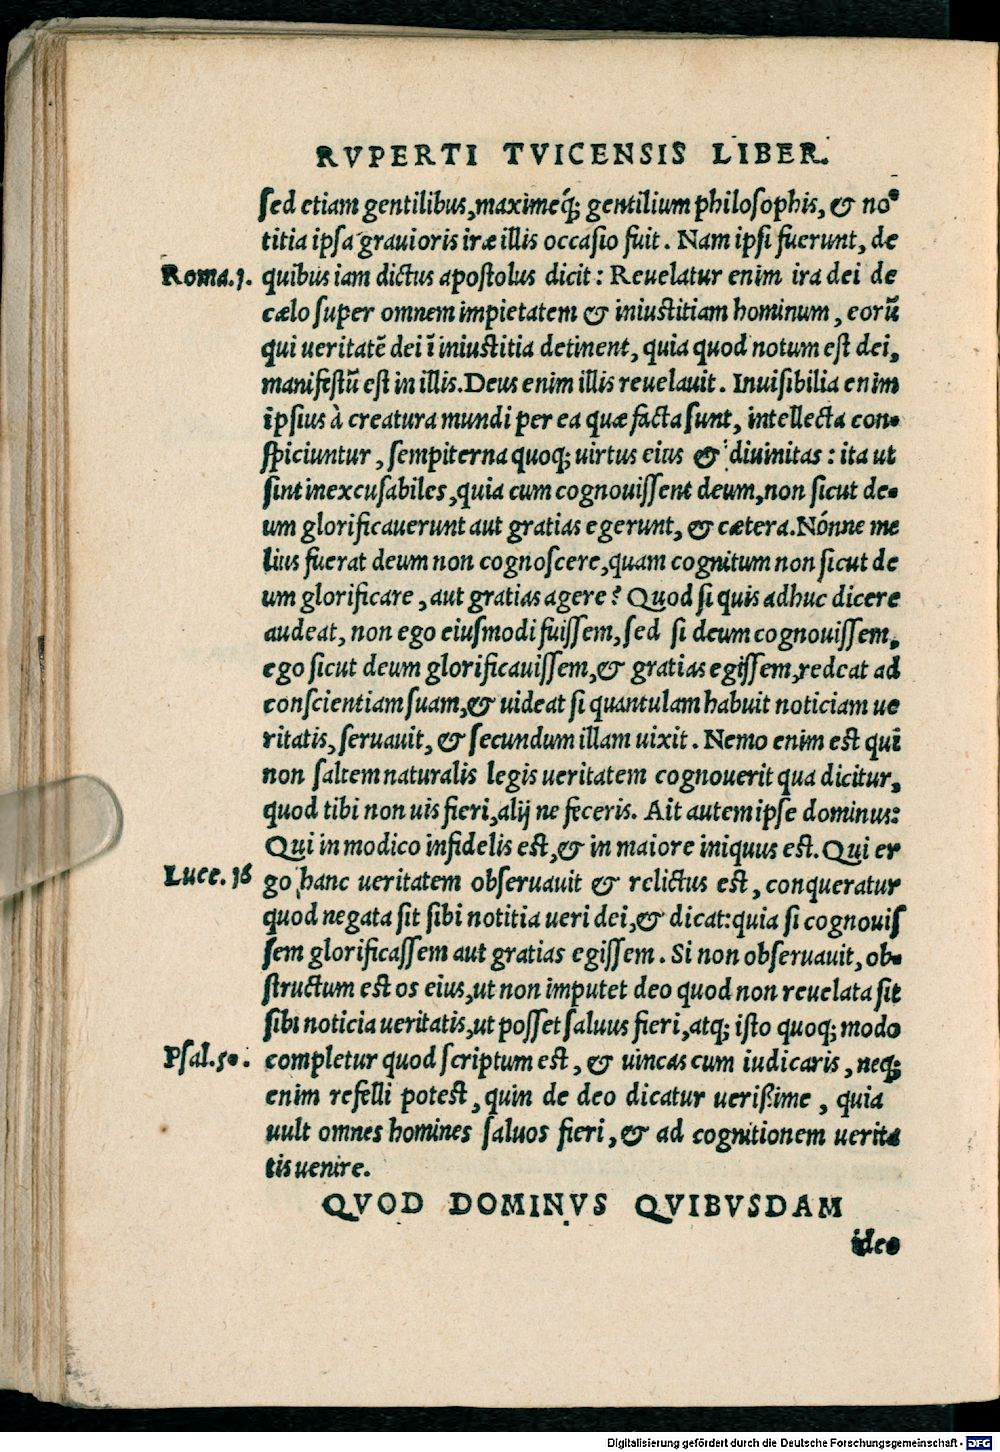 RVPERTI TVICENSIS LIBER.
sed etiam gentilibus, maximeq́; gentilium philosophis, & no-
titia ipsa grauioris iræ illis occasio fuit. Nam ipsi fuerunt, de
Roma.1. quibus iam dictus apostolus dicit: Reuelatur enim ira dei de
cælo super omnem impietatem & iniustitiam hominum, eorũ
qui ueritatẽ dei ĩ iniustitia detinent, quia quod notum est dei,
manifestũ est in illis. Deus enim illis reuelauit. Inuisibilia enim
ipsius à creatura mundi per ea quæ facta sunt, intellecta con-
spiciuntur, sempiterna quoq; uirtus eius & diuinitas: ita ut
sint inexcusabiles, quia cum cognouissent deum, non sicut de-
um glorificauerunt aut gratias egerunt, & cætera. Nónne me
lius fuerat deum non cognoscere, quam cognitum non sicut de
um glorificare, aut gratias agere? Quod si quis adhuc dicere
audeat, non ego eiusmodi fuissem, sed si deum cognouissem,
ego sicut deum glorificauissem, & gratias egissem, redeat ad
conscientiam suam, & uideat si quantulam habuit noticiam ue
ritatis, seruauit, & secundum illam uixit. Nemo enim est qui
non saltem naturalis legis ueritatem cognouerit qua dicitur,
quod tibi non uis fieri, alij ne feceris. Ait autem ipse dominus:
Qui in modico infidelis est, & in maiore iniquus est. Qui er
Luce. 16 go hanc ueritatem obseruauit & relictus est, conqueratur
quod negata sit sibi notitia ueri dei, & dicat: quia si cognouis
sem glorificassem aut gratias egissem. Si non obseruauit, ob-
structum est os eius, ut non imputet deo quod non reuelata sit
sibi noticia ueritatis, ut posset saluus fieri, atq; isto quoq; modo
Psal.50. completur quod scriptum est, & uincas cum iudicaris, neq;
enim refelli potest, quin de deo dicatur uerißime, quia
uult omnes homines saluos fieri, & ad cognitionem uerita
tis uenire.
QVOD DOMINVS QVIBVSDAM
ideo
Digitalisierung gefördert durch die Deutsche Forschungsgemeinschaft - DFG